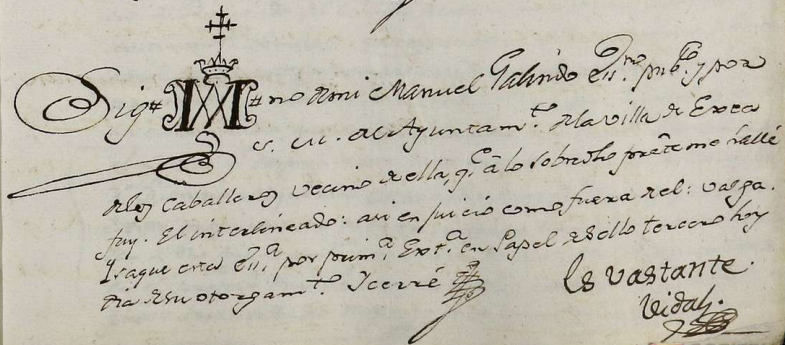 Sig# #no de mi Manuel Galindo Ess.no pub.co y por
S. M. del Ayuntam.to de la villa de Exea
de los Caballeros vecino de ella, q.e â lo sobredho pres.te me hallé
fuy. El interlineado: asi en juicio como fuera de el: valga.
Y saque esta Ess.ra por prim.a Ext.ta en Papel de sello tercero hoy
dia de su otorgam.to Y cerré
Es vastante
Vidal.